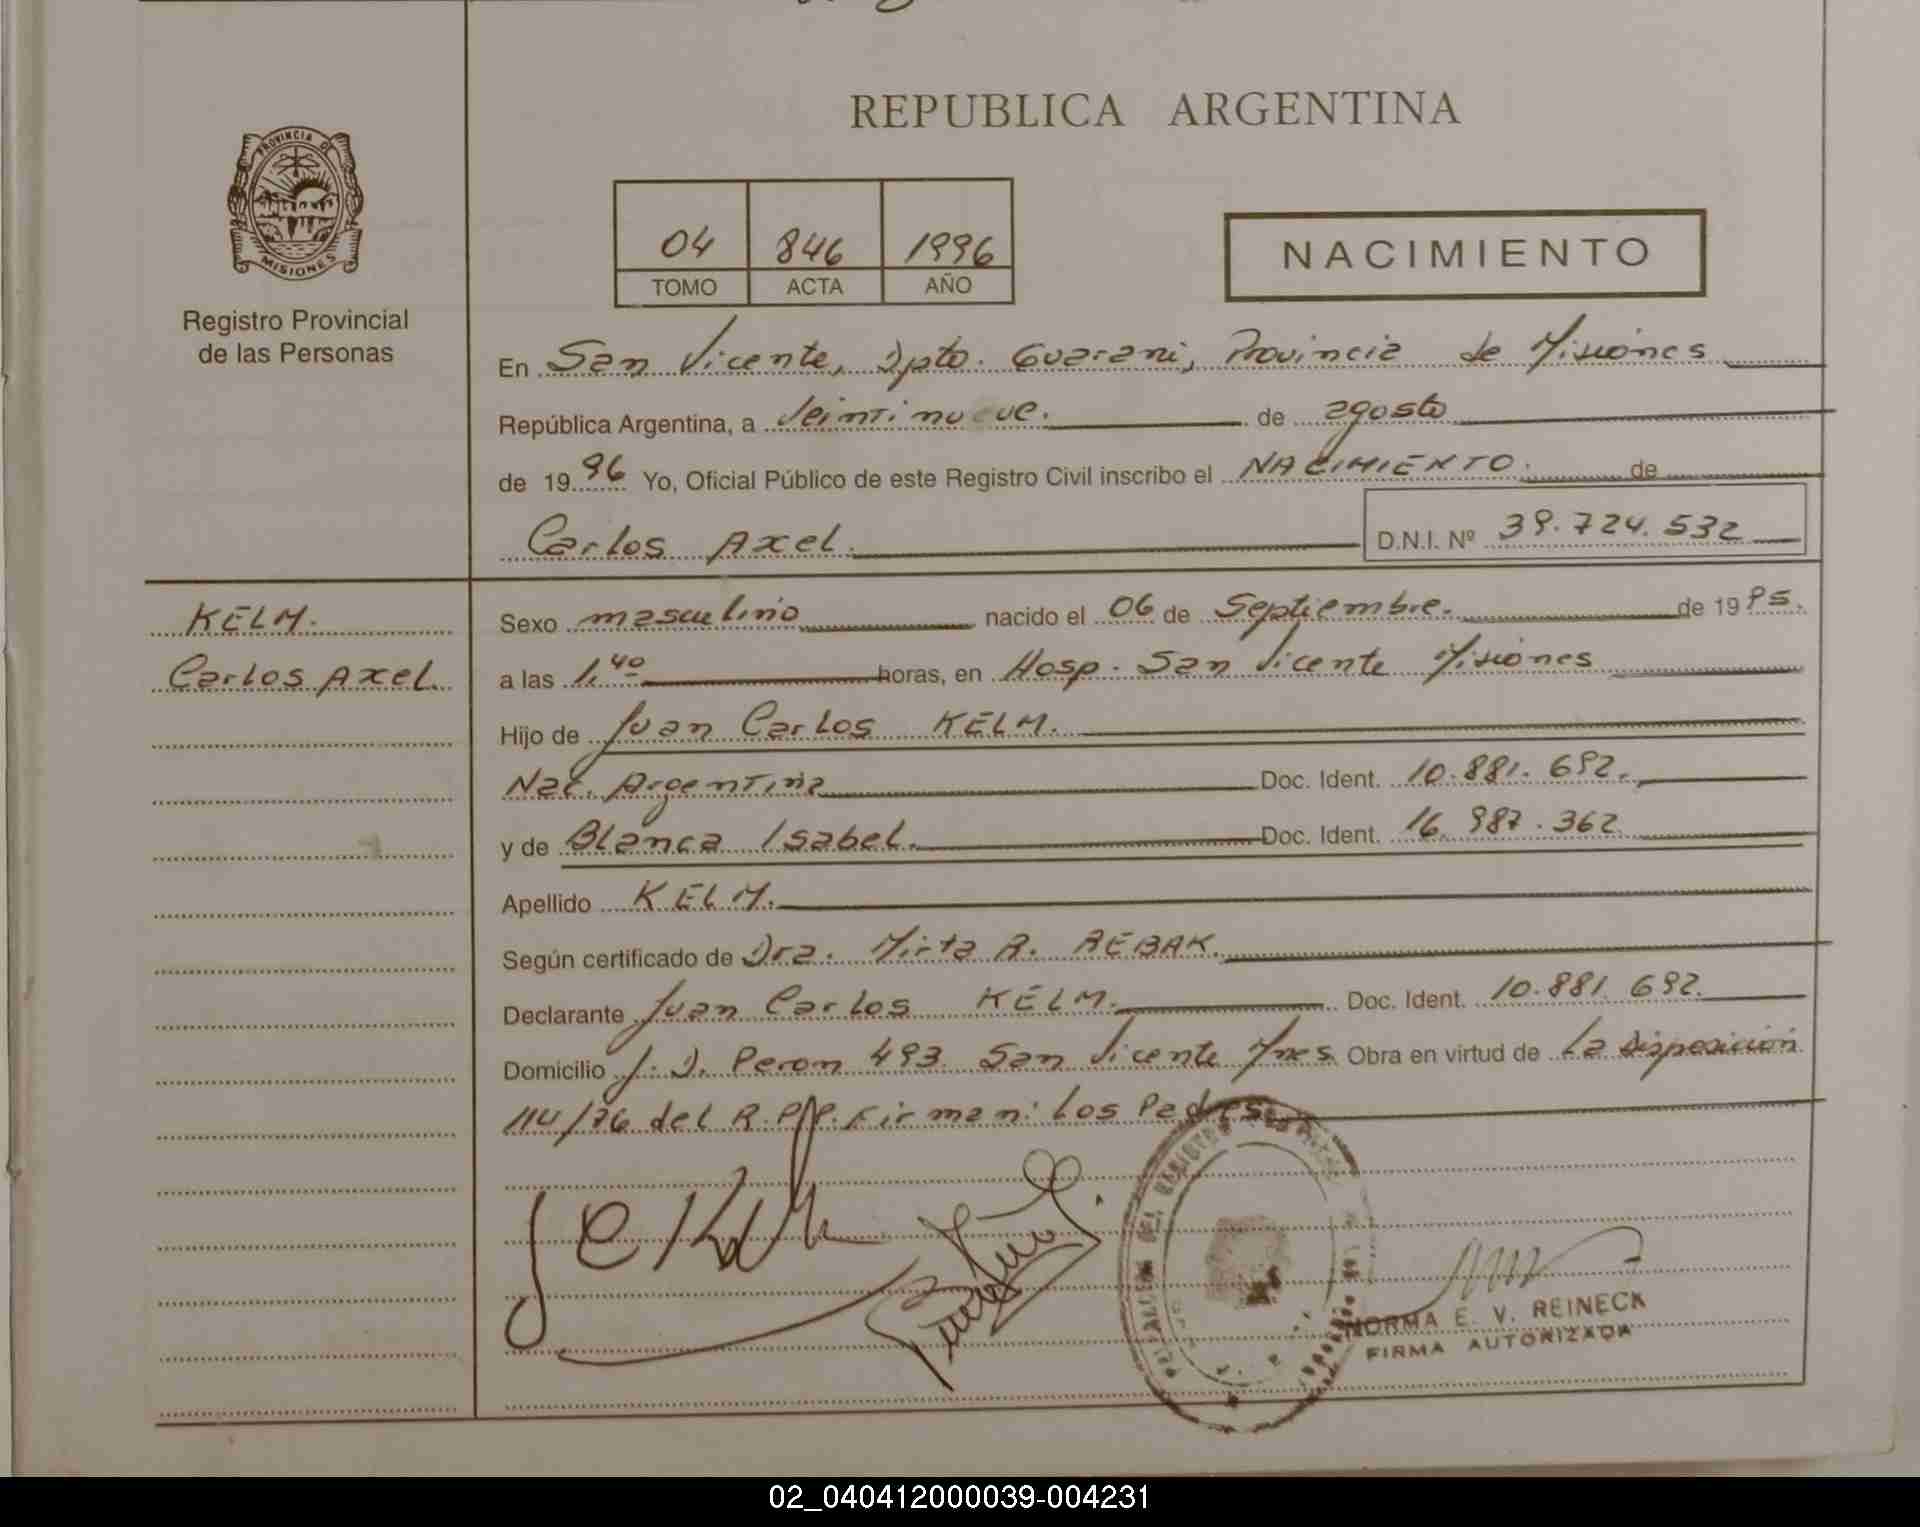 PROVINCIA DE
MISIONES
Registro Provincial
de las Personas
REPUBLICA ARGENTINA
04 846 1996
TOMO ACTA AÑO
NACIMIENTO
En San Vicente, Dpto. Guarani, Provincia de Misiones
República Argentina, a Veintinueve. de agosto
de 1996 Yo, Oficial Público de este Registro Civil inscribo el NACIMIENTO. de
Carlos Axel. D.N.I. Nº 39.724.532
KELM.
Carlos Axel.
Sexo masculino nacido el 06 de Septiembre. de 1995.
a las 1,40 horas, en Hosp. San Vicente Misiones
Hijo de Juan Carlos KELM.
Nac. Argentina Doc. Ident. 10.881.692.
y de Blanca Isabel. Doc. Ident. 16.987.362
Apellido KELM.
Según certificado de Dra. Mirta R. REBAK.
Declarante Juan Carlos KELM. Doc. Ident. 10.881.692.
Domicilio J. D. Peron 493 San Vicente Mnes. Obra en virtud de La disposición
114/76 del R.P.P. Firman: Los Padres
NORMA E. V. REINECK
FIRMA AUTORIZADA
02_040412000039-004231